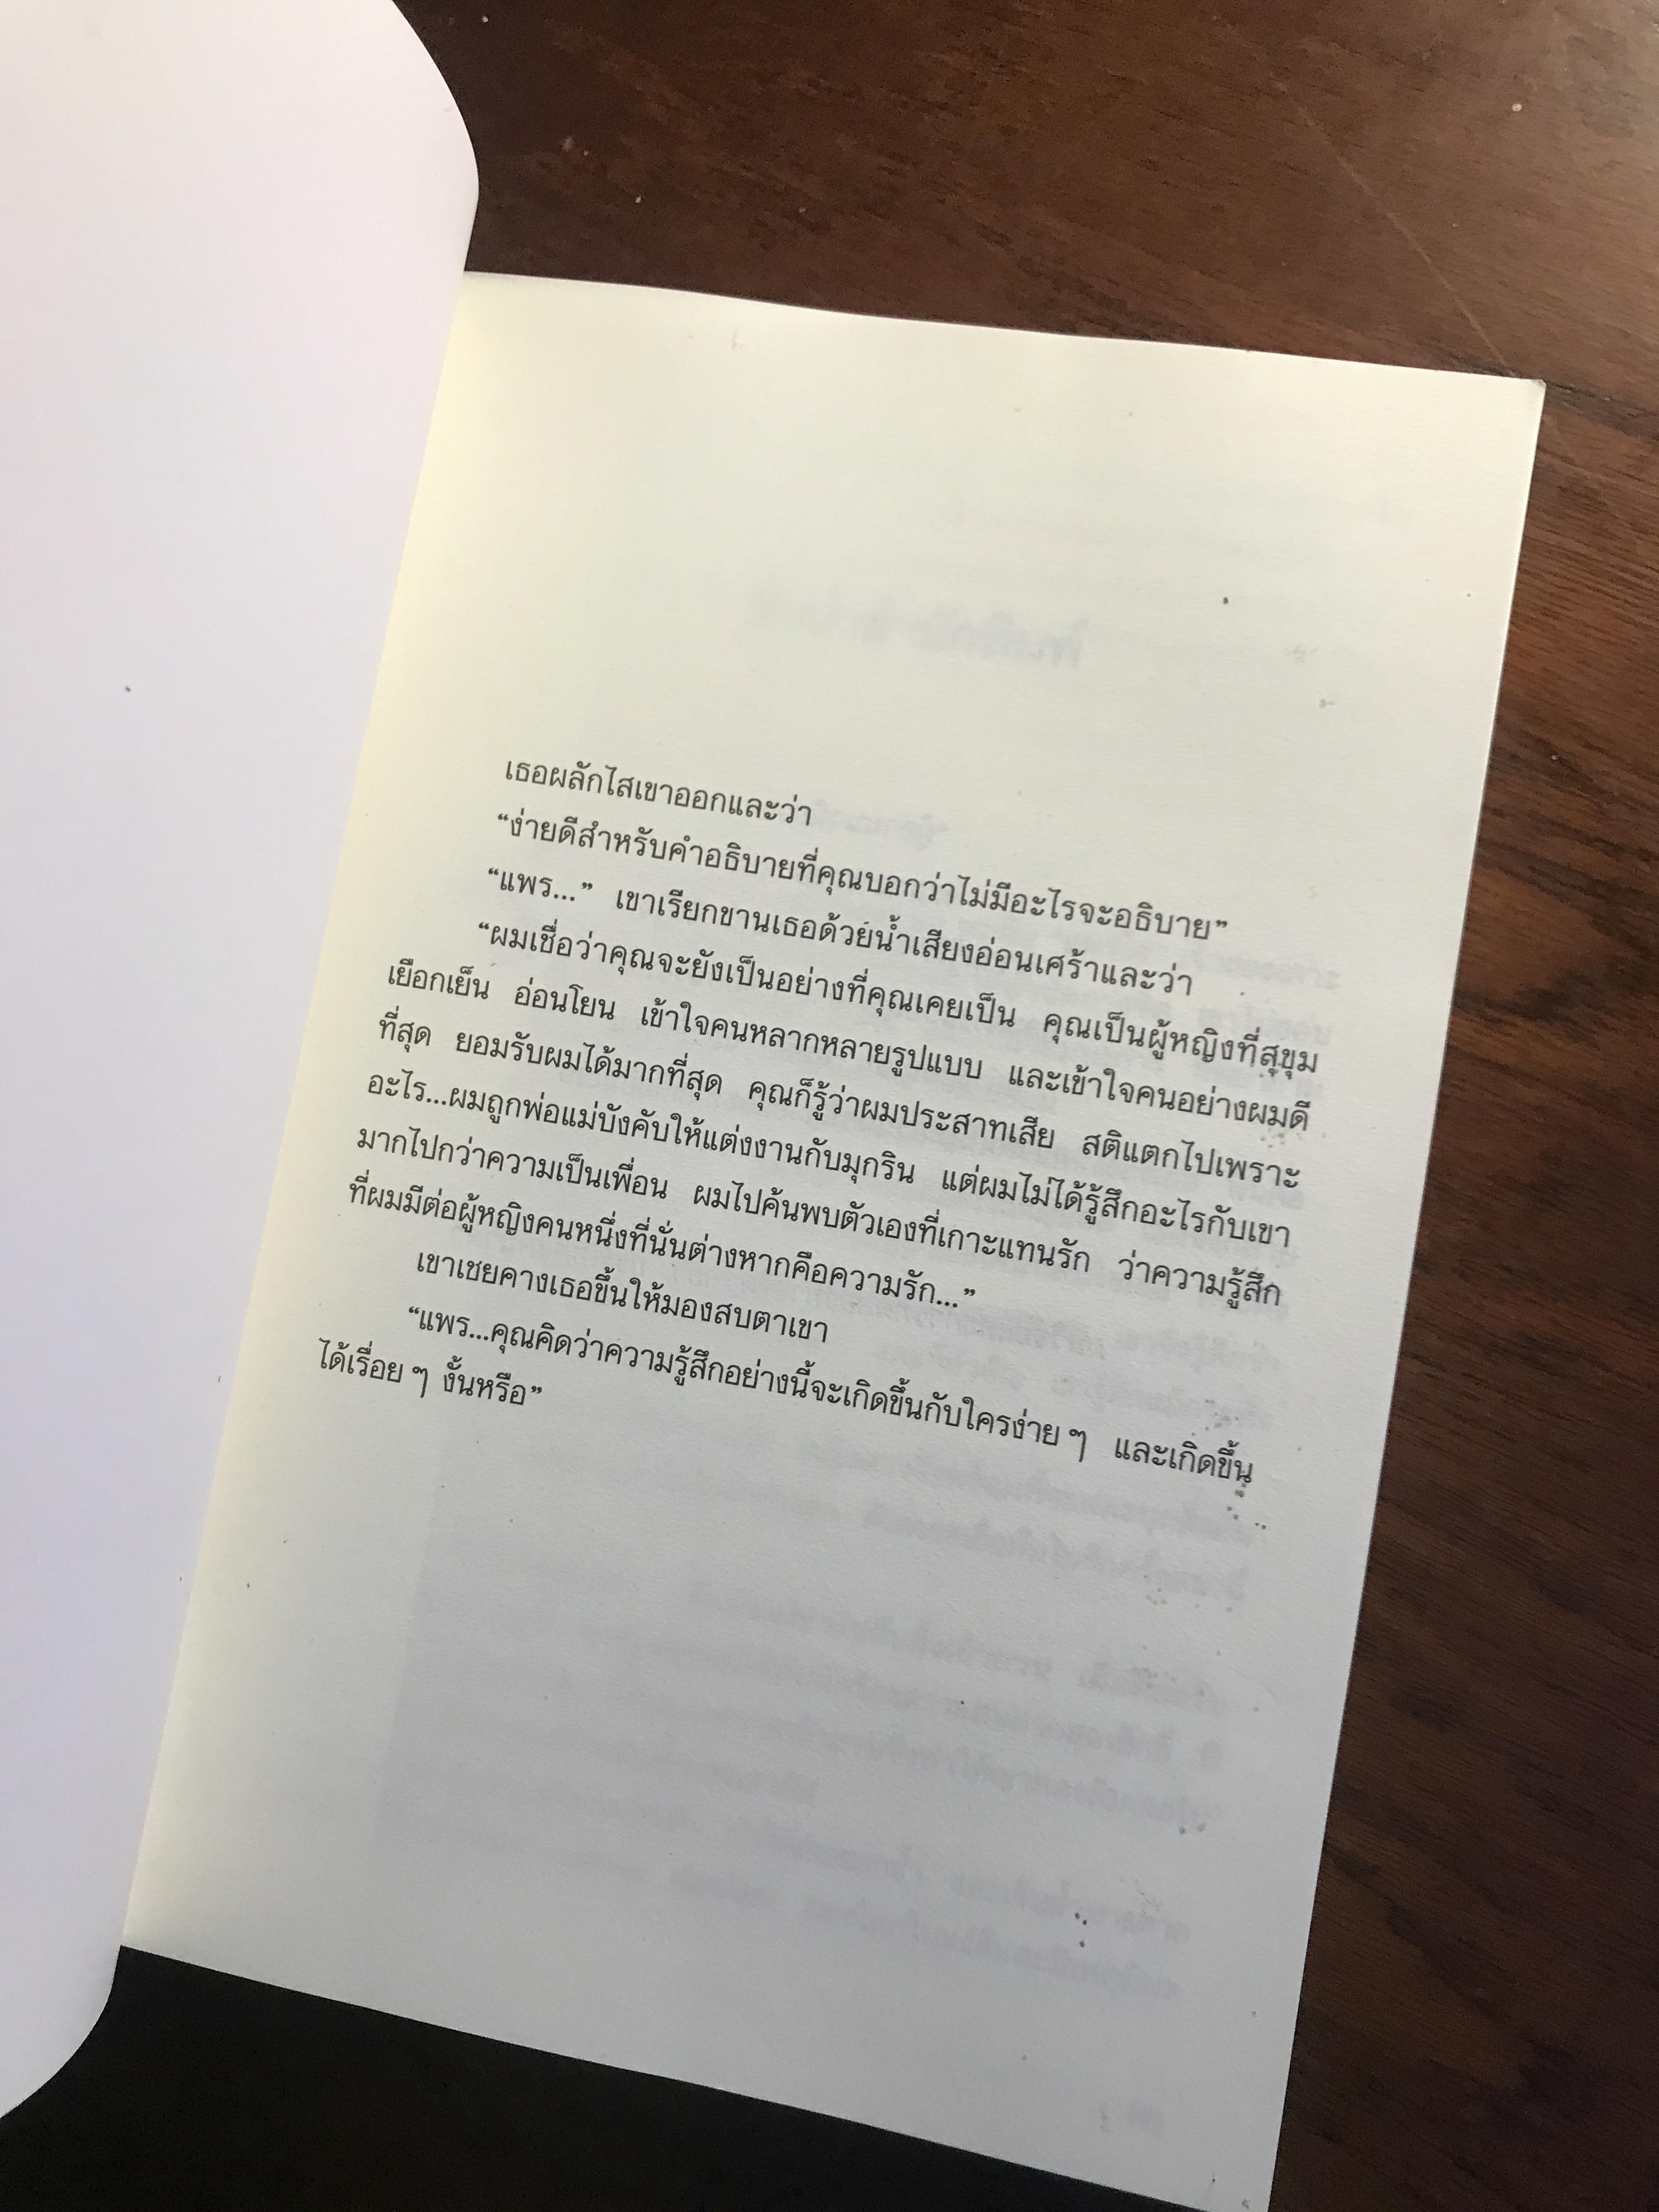 เธอผลักไสเขาออกและว่า
“ง่ายดีสำหรับคำอธิบายที่คุณบอกว่าไม่มีอะไรจะอธิบาย”
“แพร...” เขาเรียกขานเธอด้วยน้ำเสียงอ่อนเศร้าและว่า
“ผมเชื่อว่าคุณจะยังเป็นอย่างที่คุณเคยเป็น คุณเป็นผู้หญิงที่สุขุม
เยือกเย็น อ่อนโยน เข้าใจคนหลากหลายรูปแบบ และเข้าใจคนอย่างผมดี
ที่สุด ยอมรับผมได้มากที่สุด คุณก็รู้ว่าผมประสาทเสีย สติแตกไปเพราะ
อะไร...ผมถูกพ่อแม่บังคับให้แต่งงานกับมุกริน แต่ผมไม่ได้รู้สึกอะไรกับเขา
มากไปกว่าความเป็นเพื่อน ผมไปค้นพบตัวเองที่เกาะแทนรัก ว่าความรู้สึก
ที่ผมมีต่อผู้หญิงคนหนึ่งที่นั่นต่างหากคือความรัก...”
เขาเชยคางเธอขึ้นให้มองสบตาเขา
“แพร...คุณคิดว่าความรู้สึกอย่างนี้จะเกิดขึ้นกับใครง่าย ๆ และเกิดขึ้น
ได้เรื่อย ๆ งั้นหรือ”